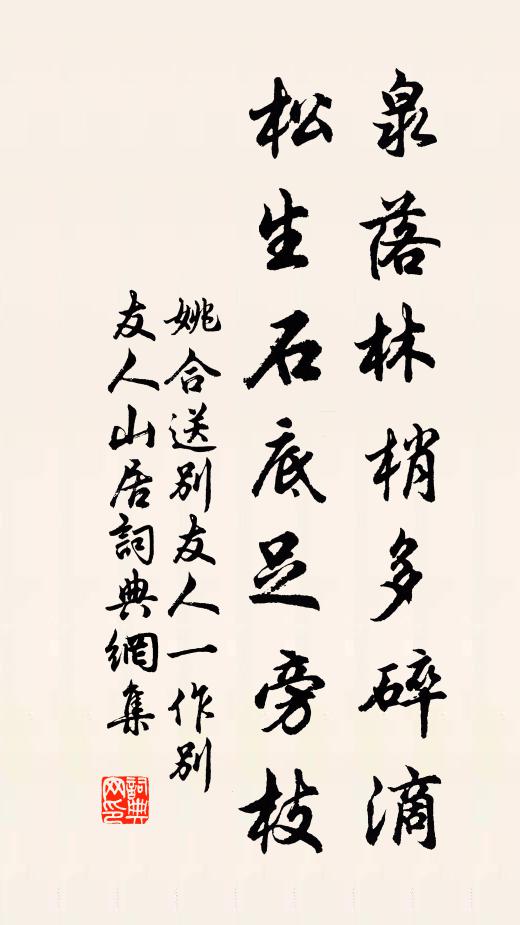 泉落林梢多碎滴
松生石底足旁枝
姚合送別友人一作別
友人山居詞典網集
詞典
网印